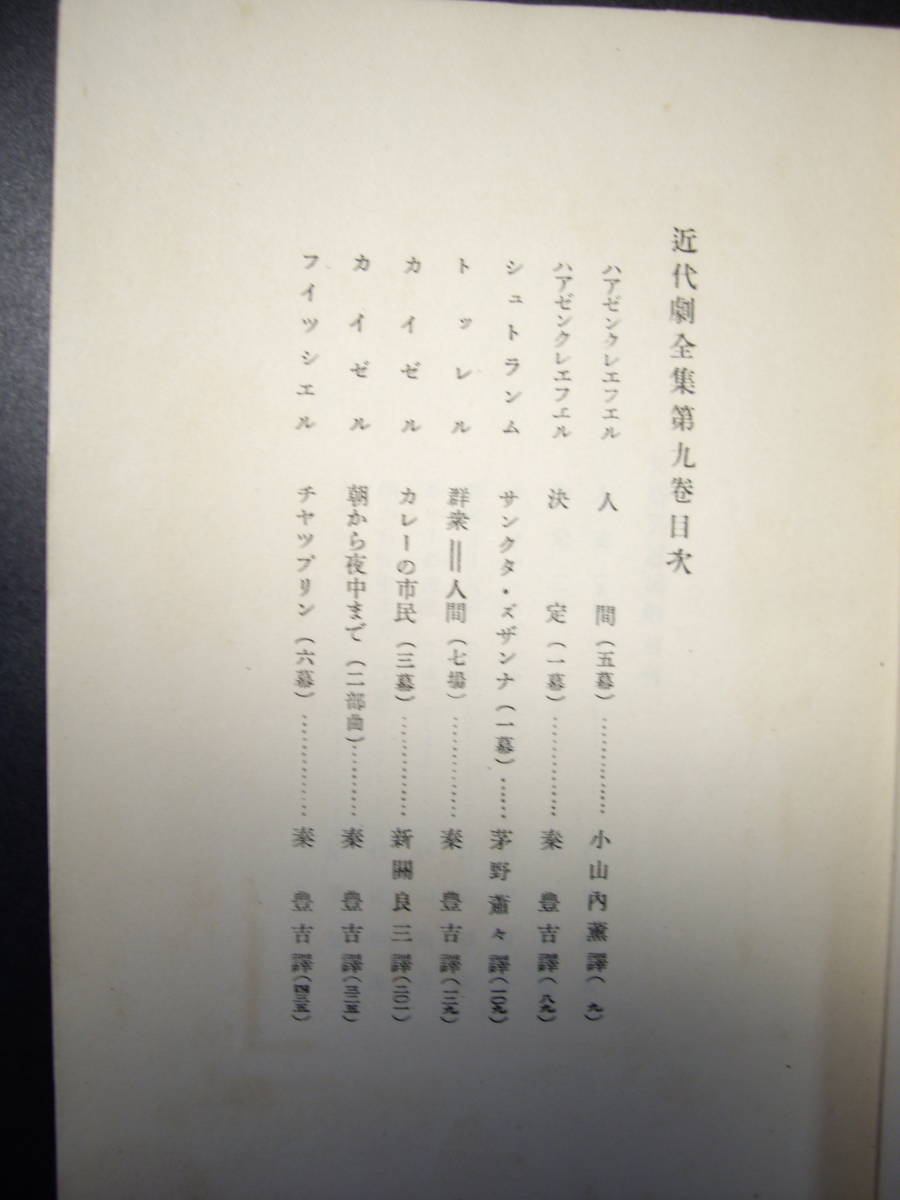 近代劇全集第九卷目次
ハアゼンクレエフエル 人間(五幕)……………小山内薰譯(九)
ハアゼンクレエフエル 決定(一幕)……………秦豊吉譯(八九)
シュトランム サンクタ・ズザンナ(一幕)……茅野蕭々譯(一〇九)
トッレル 群衆＝人間(七場)……………秦豊吉譯(一二九)
カイゼル カレーの市民(三幕)……………新關良三譯(二〇一)
カイゼル 朝から夜中まで(二部曲)…………秦豊吉譯(三三五)
フイツシエル チヤツプリン(六幕)……………秦豊吉譯(四三五)